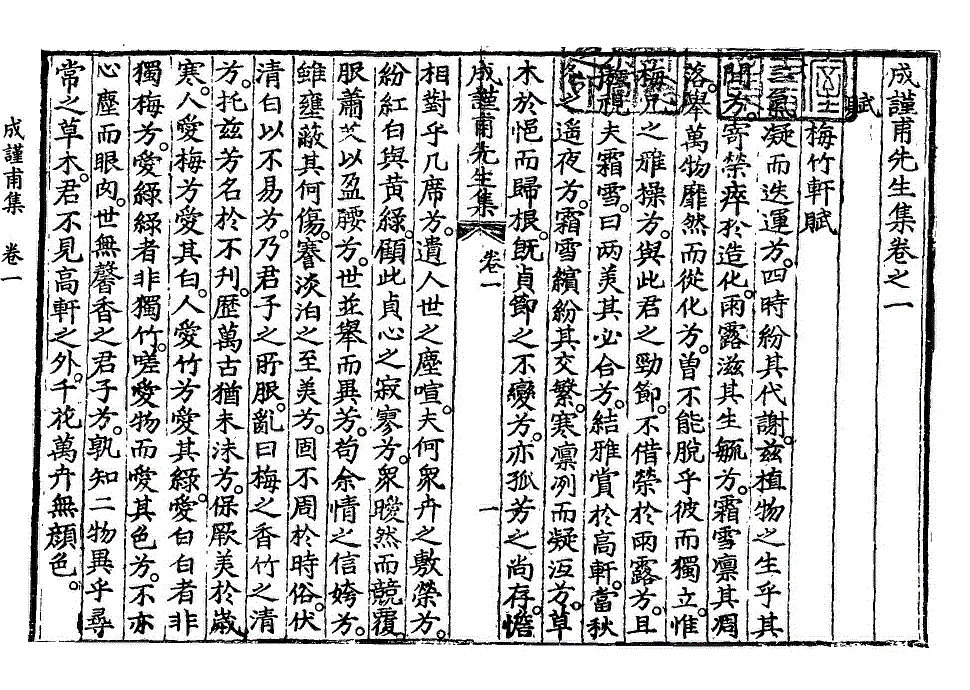 成謹甫先生集卷之一
賦
梅竹軒賦
二氣凝而迭運兮。四時紛其代謝。玆植物之生乎其
間兮。寄榮瘁於造化。雨露滋其生毓兮。霜雪凛其凋
落。擧萬物靡然而從化兮。曾不能脫乎彼而獨立。惟
梅兄之雅操兮。與此君之勁節。不借榮於雨露兮。且
視夫霜雪。曰兩美其必合兮。結雅賞於高軒。當秋
之遥夜兮。霜雪繽紛其交繁。寒凛冽而凝沍兮。草
木於悒而歸根。旣貞節之不變兮。亦孤芳之尚存。憺
成謹甫先生集 卷一 一
相對乎几席兮。遺人世之塵喧。夫何衆卉之敷榮兮。
紛紅白與黃綠。顧此貞心之寂寥兮。衆曖然而競覆。
服蕭艾以盈腰兮。世並擧而異芳。苟余情之信姱兮。
雖壅蔽其何傷。謇淡泊之至美兮。固不周於時俗。伏
清白以不易兮。乃君子之所服。亂曰梅之香竹之清
兮。托玆芳名於不刋。歷萬古猶未沬兮。保厥美於歲
寒。人愛梅兮愛其白。人愛竹兮愛其綠。愛白白者非
獨梅兮。愛綠綠者非獨竹。嗟愛物而愛其色兮。不亦
心塵而眼肉。世無馨香之君子兮。孰知二物異乎尋
常之草木。君不見高軒之外。千花萬卉無顔色。
成謹甫集 卷一